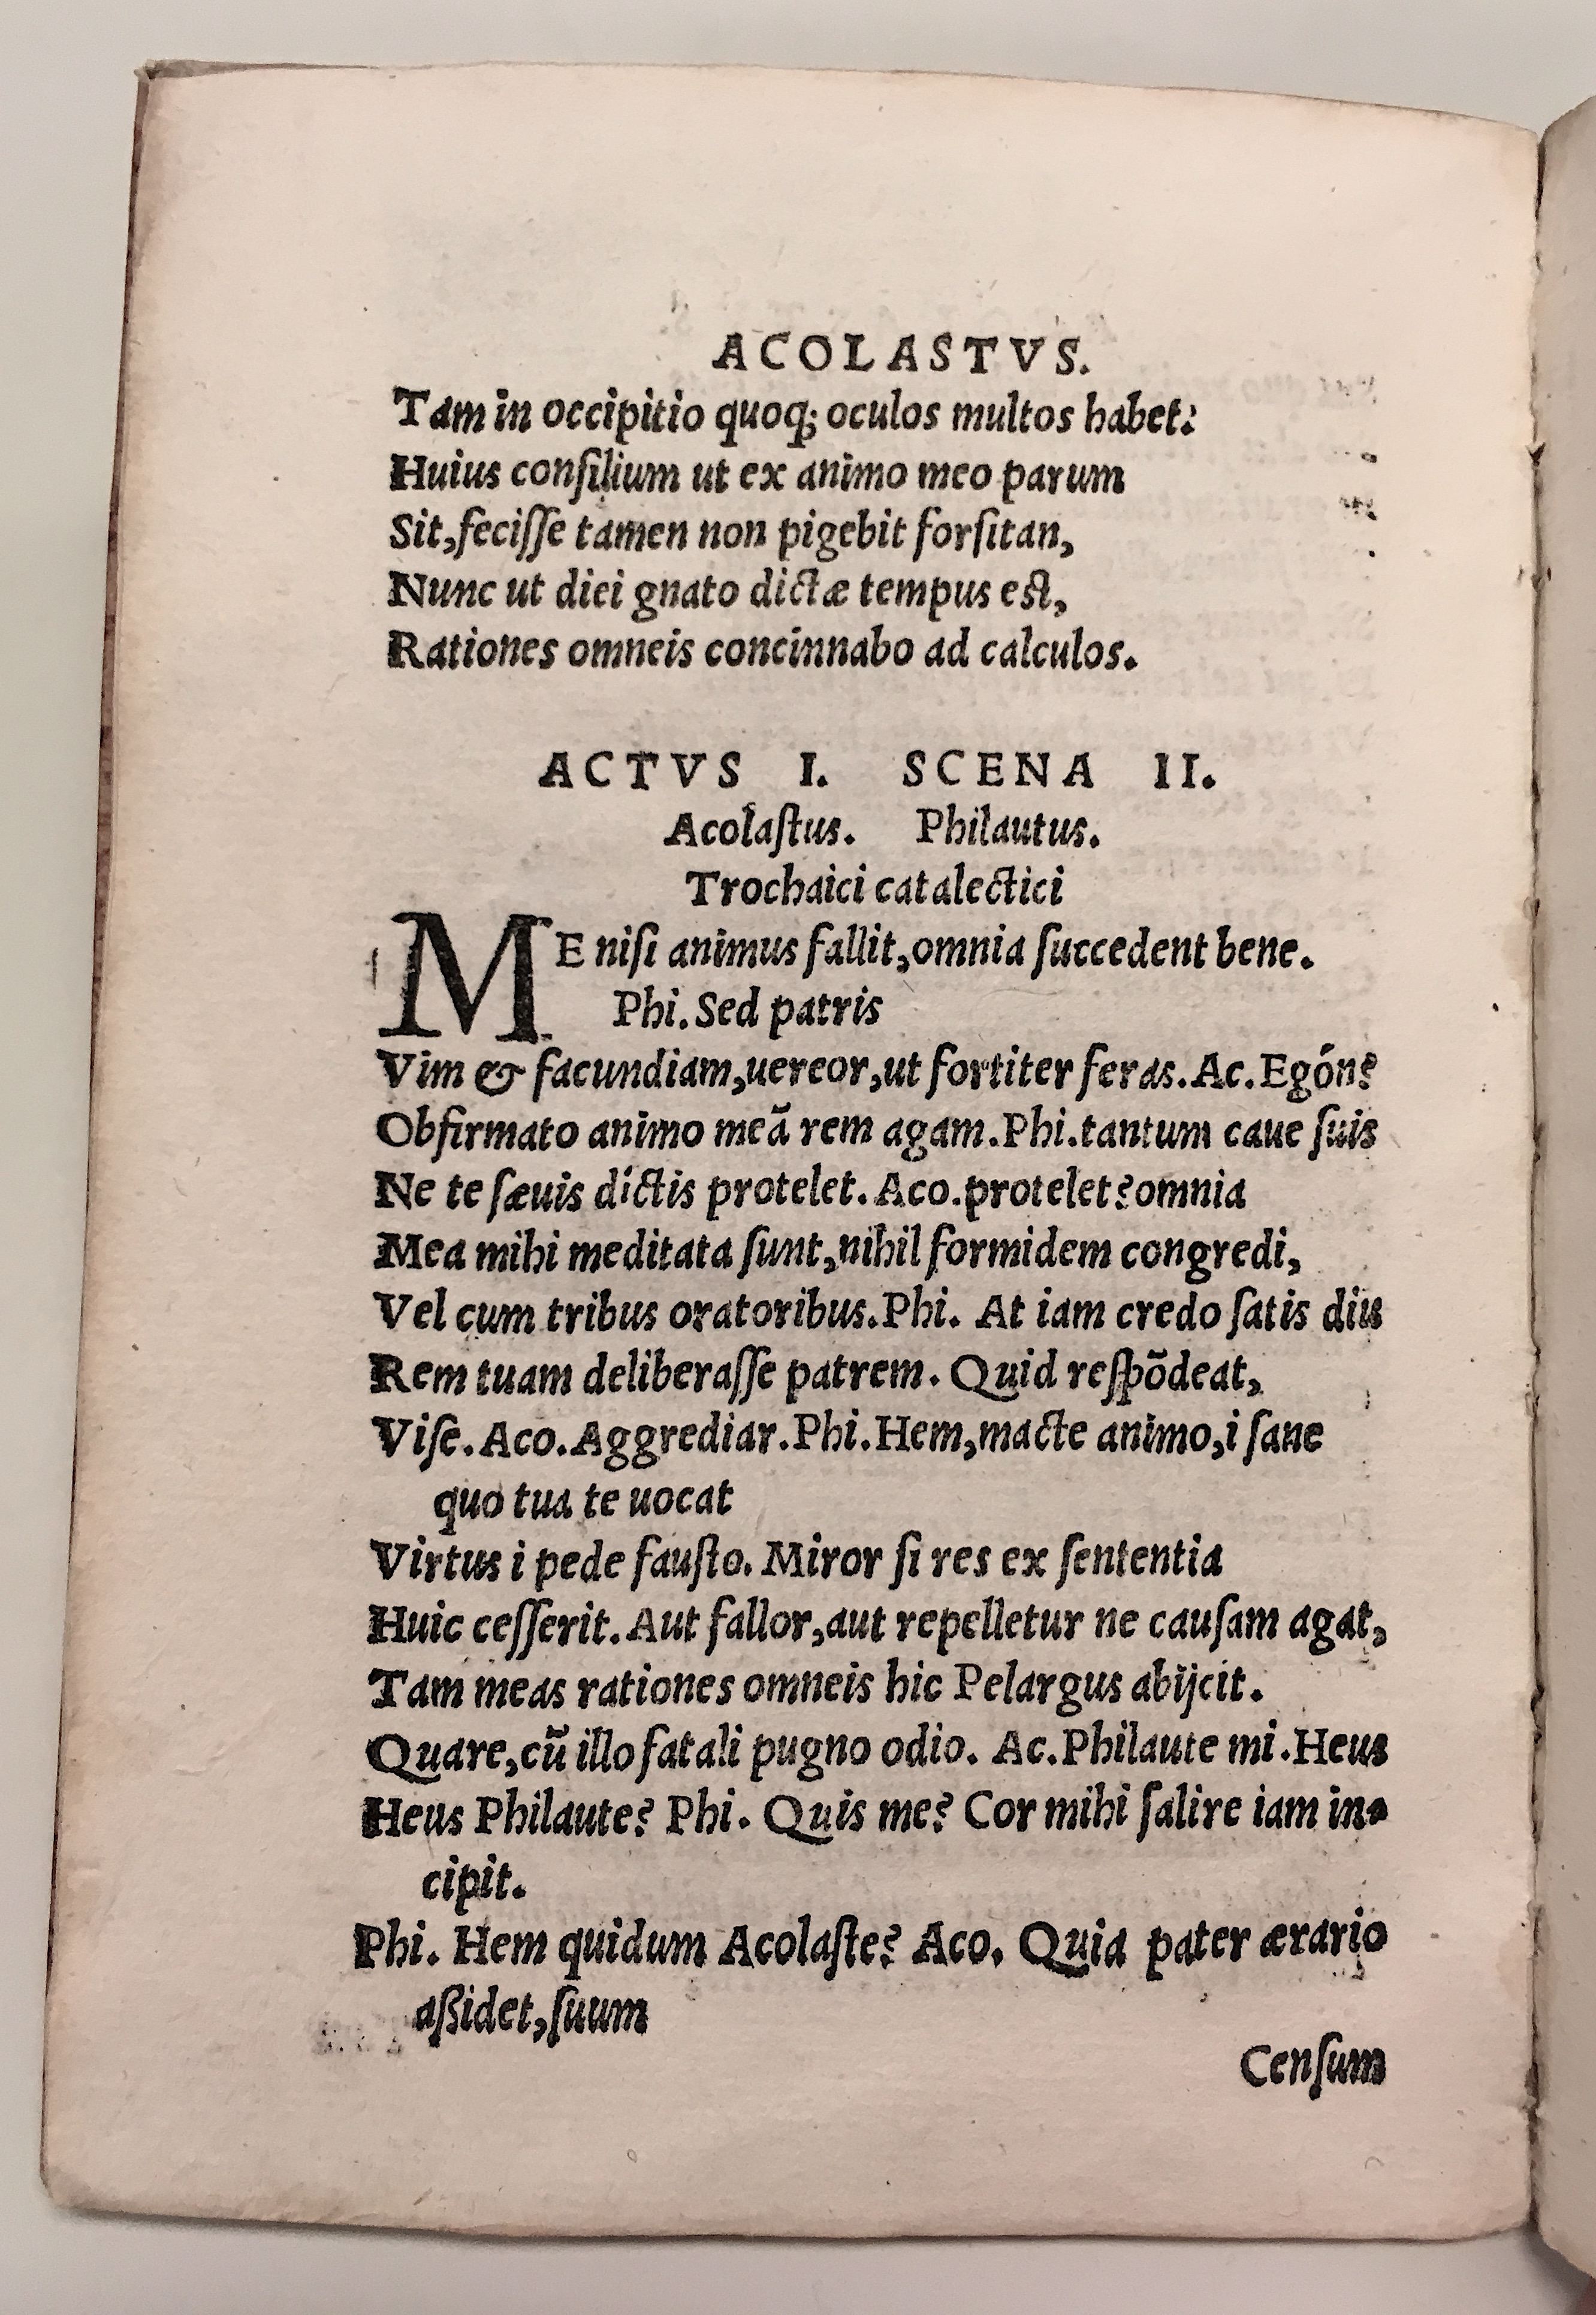 ACOLASTVS.
Tam in occipitio quoq; oculos multos habet:
Huius conſilium ut ex animo meo parum
Sit,feciſſe tamen non pigebit forſitan,
Nunc ut diei gnato dictæ tempus eſt,
Rationes omneis concinnabo ad calculos.
ACTVS I. SCENA II.
Acolaſtus. Philautus.
Trochaici catalectici
ME niſi animus fallit,omnia ſuccedent bene.
Phi. Sed patris
Vim & facundiam,uereor,ut fortiter feras. Ac. Egón?
Obfirmato animo meã rem agam.Phi.tantum caue ſuis
Ne te ſæuis díctis protelet. Aco.protelet?omnia
Mea mihi meditata ſunt,nihil formidem congredi,
Vel cum tribus oratoribus.Phi. At iam credo ſatis diu
Rem tuam deliberaſſe patrem. Quid reſpõdeat,
Viſe. Aco. Aggrediar.Phi.Hem,macte animo,i ſane
quo tua te uocat
Virtus i pede fauſto. Miror ſi res ex ſententia
Huic ceſſerit. Aut fallor,aut repelletur ne cauſam agat,
Tam meas rationes omneis hic Pelargus abijcit.
Quare,cũ illo fatali pugno odio. Ac.Philaute mi.Heus
Heus Philaute? Phi. Quis me? Cor mihi ſalire iam in-
cipit.
Phi. Hem quidum Acolaſte? Aco. Quia pater ærario
aßidet,ſuum
Cenſum